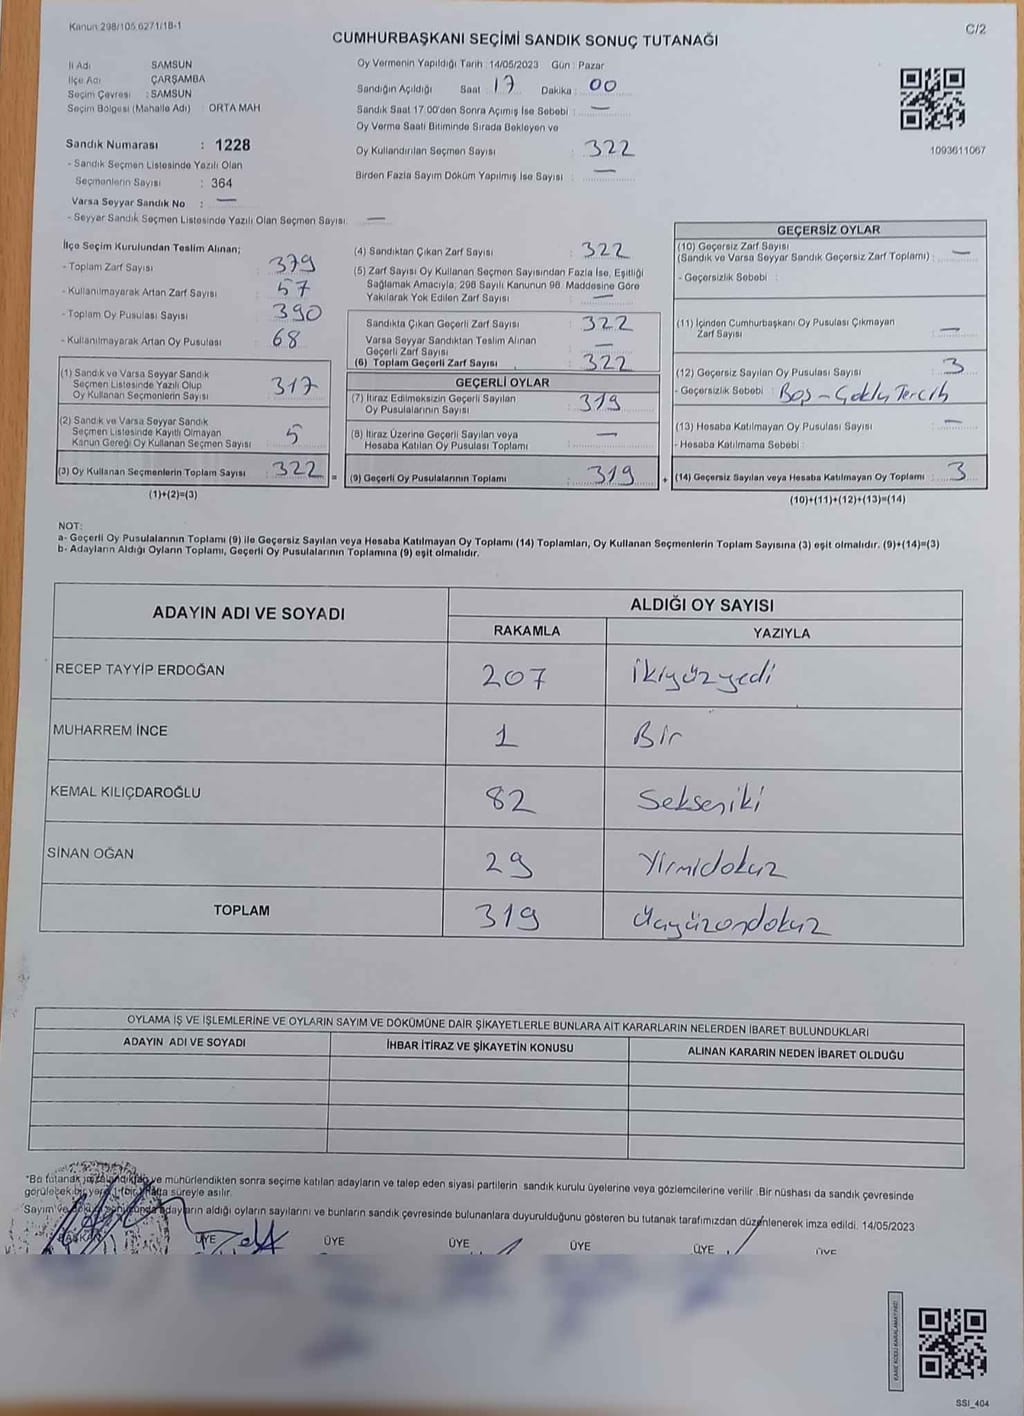 Kanun:298/105 6271/18-1
C/2
CUMHURBAŞKANI SEÇİMİ SANDIK SONUÇ TUTANAĞI
İl Adı SAMSUN
İlçe Adı ÇARŞAMBA
Seçim Çevresi : SAMSUN
Seçim Bölgesi (Mahalle Adı) : ORTA MAH
Sandık Numarası : 1228
- Sandık Seçmen Listesinde Yazılı Olan
Seçmenlerin Sayısı : 364
Varsa Seyyar Sandık No : —
- Seyyar Sandık Seçmen Listesinde Yazılı Olan Seçmen Sayısı: —
Oy Vermenin Yapıldığı Tarih :14/05/2023 Gün : Pazar
Sandığın Açıldığı Saat : 17 Dakika : 00
Sandık Saat 17.00'den Sonra Açımış İse Sebebi : —
Oy Verme Saati Bitiminde Sırada Bekleyen ve
Oy Kullandırılan Seçmen Sayısı : 322
Birden Fazla Sayım Döküm Yapılmış İse Sayısı : —
1093611067
İlçe Seçim Kurulundan Teslim Alınan;
- Toplam Zarf Sayısı : 379
- Kullanılmayarak Artan Zarf Sayısı : 57
- Toplam Oy Pusulası Sayısı : 390
- Kullanılmayarak Artan Oy Pusulası : 68
(1) Sandık ve Varsa Seyyar Sandık
Seçmen Listesinde Yazılı Olup
Oy Kullanan Seçmenlerin Sayısı : 317
(2) Sandık ve Varsa Seyyar Sandık
Seçmen Listesinde Kayıtlı Olmayan
Kanun Gereği Oy Kullanan Seçmen Sayısı : 5
(3) Oy Kullanan Seçmenlerin Toplam Sayısı : 322
(1)+(2)=(3)
(4) Sandıktan Çıkan Zarf Sayısı : 322
(5) Zarf Sayısı Oy Kullanan Seçmen Sayısından Fazla İse, Eşitliği
Sağlamak Amacıyla; 298 Sayılı Kanunun 98. Maddesine Göre
Yakılarak Yok Edilen Zarf Sayısı : —
Sandıkta Çıkan Geçerli Zarf Sayısı : 322
Varsa Seyyar Sandıktan Teslim Alınan
Geçerli Zarf Sayısı : —
(6) Toplam Geçerli Zarf Sayısı : 322
GEÇERLİ OYLAR
(7) İtiraz Edilmeksizin Geçerli Sayılan
Oy Pusulalarının Sayısı : 319
(8) İtiraz Üzerine Geçerli Sayılan veya
Hesaba Katılan Oy Pusulası Toplamı : —
= (9) Geçerli Oy Pusulalarının Toplamı : 319 +
GEÇERSİZ OYLAR
(10) Geçersiz Zarf Sayısı
(Sandık ve Varsa Seyyar Sandık Geçersiz Zarf Toplamı) : —
- Geçersizlik Sebebi :
(11) İçinden Cumhurbaşkanı Oy Pusulası Çıkmayan
Zarf Sayısı : —
(12) Geçersiz Sayılan Oy Pusulası Sayısı : 3
- Geçersizlik Sebebi : Boş - Çoklu Tercih
(13) Hesaba Katılmayan Oy Pusulası Sayısı : —
- Hesaba Katılmama Sebebi :
(14) Geçersiz Sayılan veya Hesaba Katılmayan Oy Toplamı : 3
(10)+(11)+(12)+(13)=(14)
NOT:
a- Geçerli Oy Pusulalarının Toplamı (9) ile Geçersiz Sayılan veya Hesaba Katılmayan Oy Toplamı (14) Toplamları, Oy Kullanan Seçmenlerin Toplam Sayısına (3) eşit olmalıdır. (9)+(14)=(3)
b- Adayların Aldığı Oyların Toplamı, Geçerli Oy Pusulalarının Toplamına (9) eşit olmalıdır.
ADAYIN ADI VE SOYADI ALDIĞI OY SAYISI
RAKAMLA YAZIYLA
RECEP TAYYİP ERDOĞAN 207 ikiyüzyedi
MUHARREM İNCE 1 Bir
KEMAL KILIÇDAROĞLU 82 Sekseniki
SİNAN OĞAN 29 Yirmidokuz
TOPLAM 319 üçyüzondokuz
OYLAMA İŞ VE İŞLEMLERİNE VE OYLARIN SAYIM VE DÖKÜMÜNE DAİR ŞİKAYETLERLE BUNLARA AİT KARARLARIN NELERDEN İBARET BULUNDUKLARI
ADAYIN ADI VE SOYADI İHBAR İTİRAZ VE ŞİKAYETİN KONUSU ALINAN KARARIN NEDEN İBARET OLDUĞU
*Bu tutanak imzalandıktan ve mühürlendikten sonra seçime katılan adayların ve talep eden siyasi partilerin sandık kurulu üyelerine veya gözlemcilerine verilir .Bir nüshası da sandık çevresinde
görülecek bir yere 1 (bir) hafta süreyle asılır.
Sayım ve adayların aldığı oyların sayılarını ve bunların sandık çevresinde bulunanlara duyurulduğunu gösteren bu tutanak tarafımızdan düzenlenerek imza edildi. 14/05/2023
BAŞKAN ÜYE ÜYE ÜYE ÜYE ÜYE ÜYE
KARE KODU KARALAMAYINIZ!
SSI_404